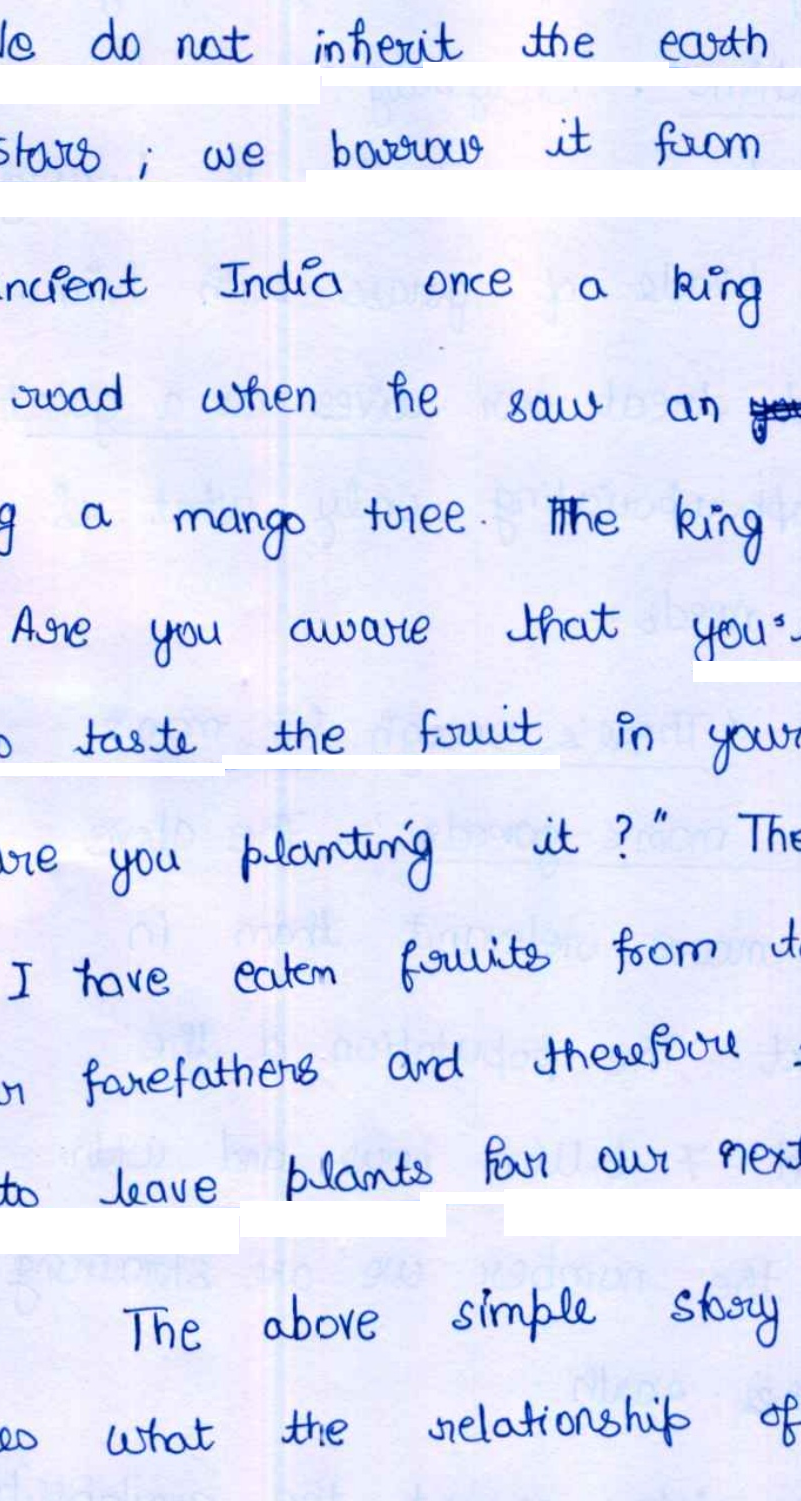 do not inherit the earth
; we borrow it from
India once a king
road when he saw an
a mango tree. The king
Are you aware that you
taste the fruit in your
you planting it ?" The
I have eaten fruits from
farefathers and therefore
to leave plants for our next
The above simple story
what the relationship of